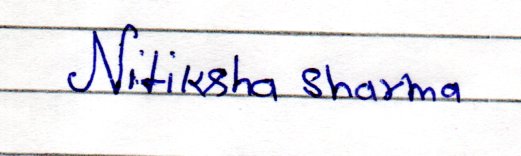 Nitiksha sharma